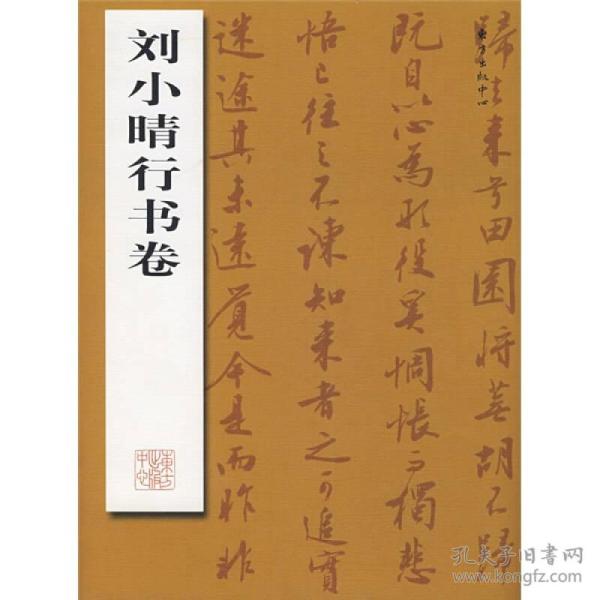 刘小晴行书卷
東方出版中心
东方出版中心
歸去来兮田園将蕪胡不歸
既自以心為形役奚惆悵而獨悲
悟已往之不諫知来者之可追實
迷途其未遠覺今是而昨非
孔夫子旧书网
www.kongfz.com